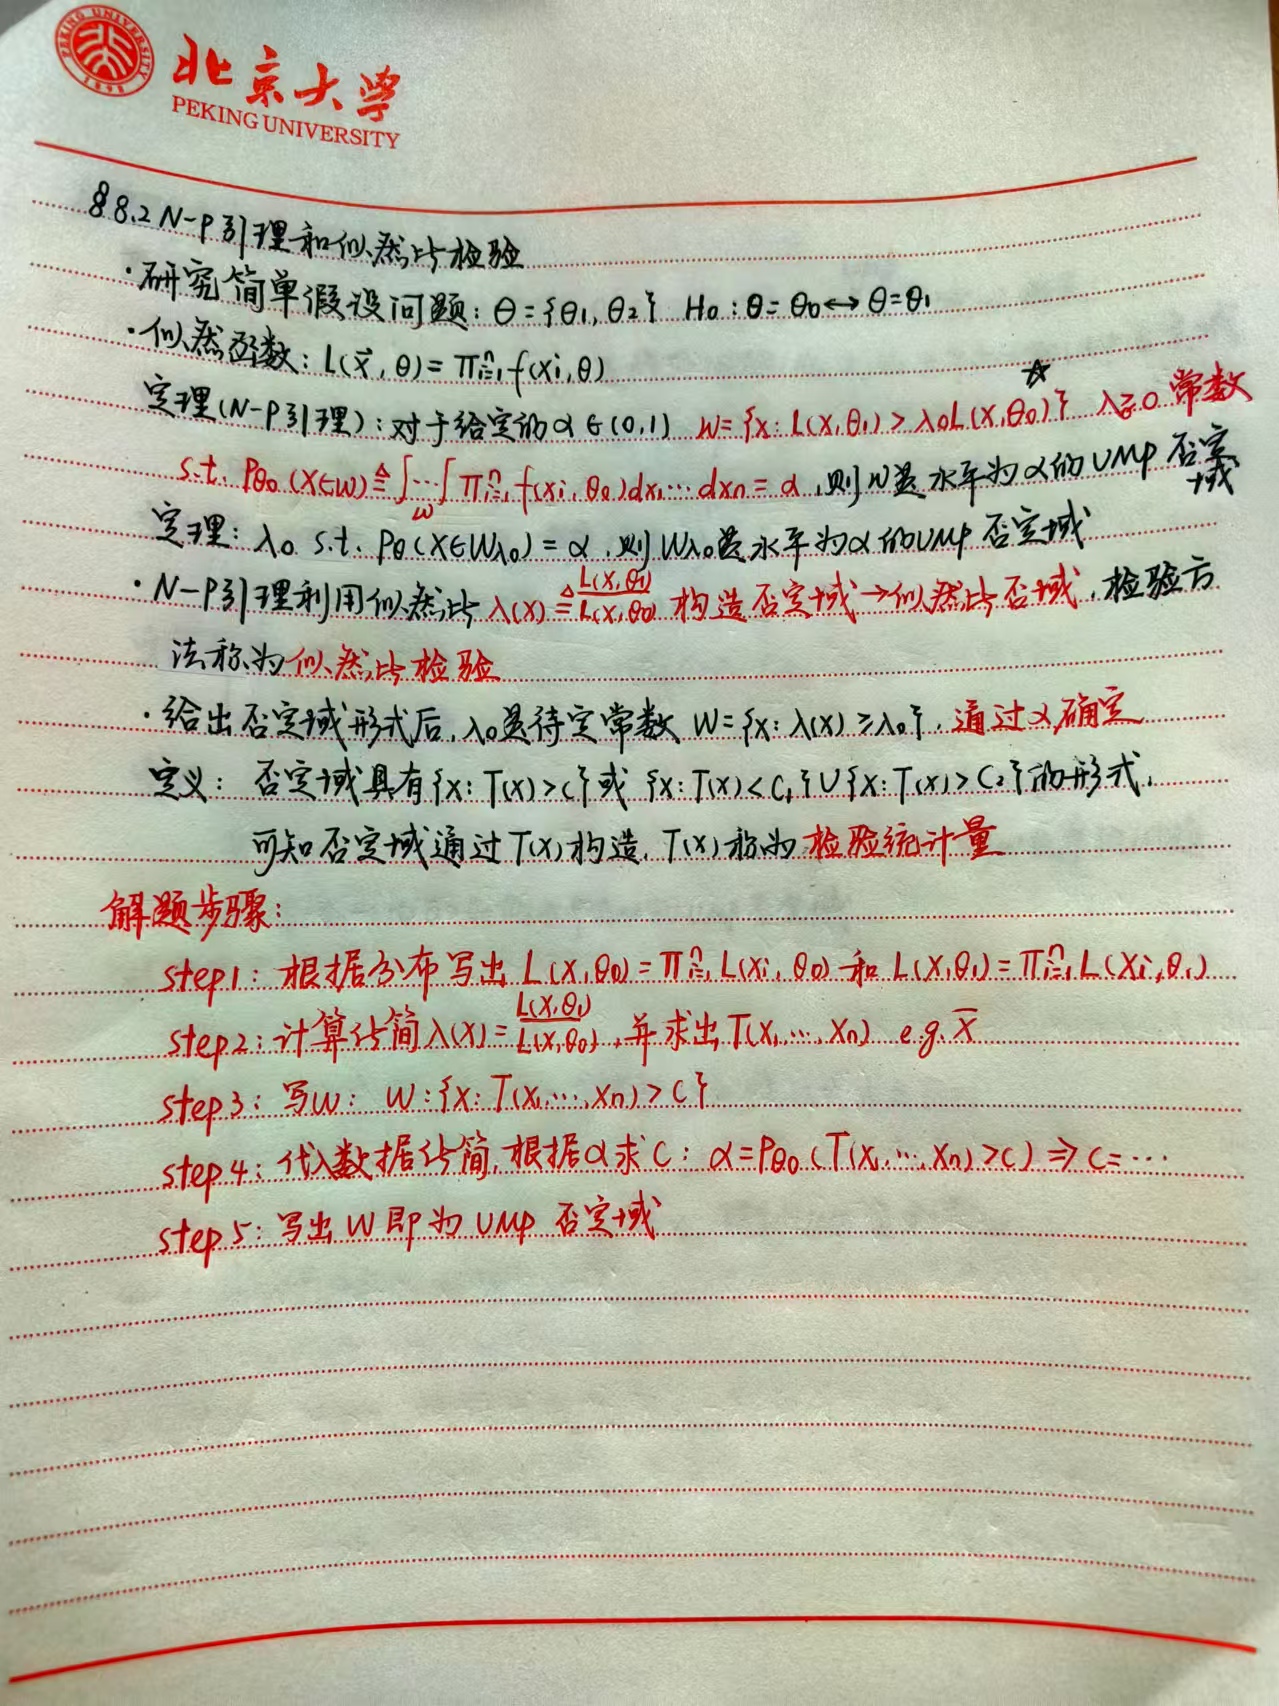 PEKING UNIVERSITY
1898
北京大学
PEKING UNIVERSITY
§8.2 N-P引理和似然比检验
·研究简单假设问题: Θ={θ₁,θ₂} H₀:θ=θ₀↔θ=θ₁
·似然函数: L(x⃗,θ)=πⁿᵢ₌₁f(xi,θ)
定理(N-P引理):对于给定的α∈(0,1) W={x: L(x,θ₁)>λ₀L(x,θ₀)} λ≥0 常数
☆
s.t. Pθ₀(X∈W)≜∫…∫_W πⁿᵢ₌₁f(xi,θ₀)dx₁…dxn=α,则W是水平为α的UMP否定域
定理: λ₀ s.t. Pθ(X∈Wλ₀)=α,则Wλ₀是水平为α的UMP否定域
·N-P引理利用似然比 λ(x)≜L(x,θ₁)/L(x,θ₀) 构造否定域→似然比否域,检验方
法称为似然比检验
·给出否定域形式后,λ₀是待定常数 W={x: λ(x)≥λ₀},通过α确定
定义: 否定域具有{x: T(x)>c}或 {x:T(x)<C₁}∪{x: T(x)>C₂}的形式,
可知否定域通过T(x)构造, T(x)称为检验统计量
解题步骤:
step1: 根据分布写出L(x,θ₀)=πⁿᵢ₌₁L(xi,θ₀)和L(x,θ₁)=πⁿᵢ₌₁L(xi,θ₁)
step2:计算化简λ(x)=L(x,θ₁)/L(x,θ₀),并求出T(x₁,…,xn) e.g. x̄
step3: 写W: W:{x: T(x₁,…,xn)>C}
step4:代入数据化简,根据α求C: α=Pθ₀(T(x₁,…,xn)>c)⇒c=…
step5:写出W即为UMP否定域